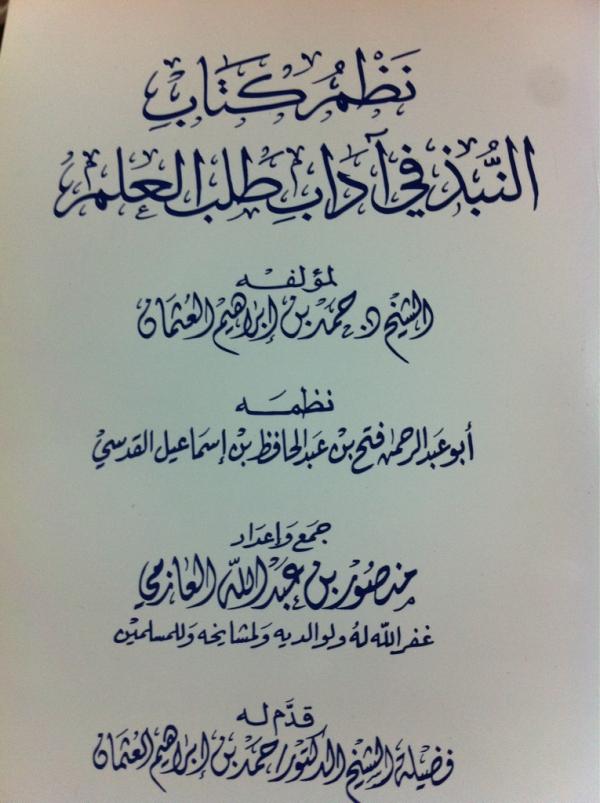 نَظْمُ كِتَابِ
النُّبَذِ فِي آدَابِ طَلَبِ الْعِلْمِ
لمؤلفه
الشيخ د. حمد بن إبراهيم العثمان
نظمه
أبو عبد الرحمن فتح بن عبد الحافظ بن إسماعيل القدسي
جمع وإعداد
منصور بن عبد الله العازمي
غفر الله له ولوالديه ولمشايخه وللمسلمين
قدَّم له
فضيلة الشيخ الدكتور/حمد بن إبراهيم العثمان